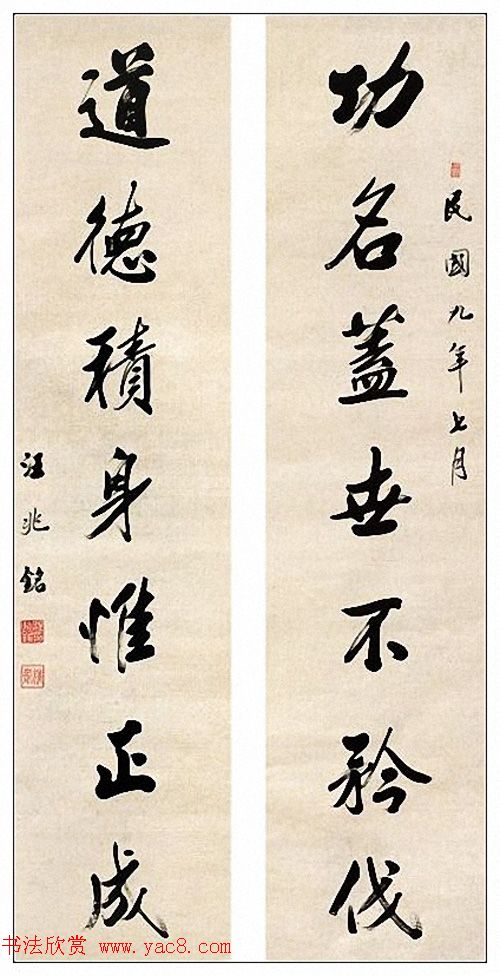 民國九年七月
功名蓋世不矜伐
道德積身惟正成
汪兆銘
书法欣赏 www.yac8.com